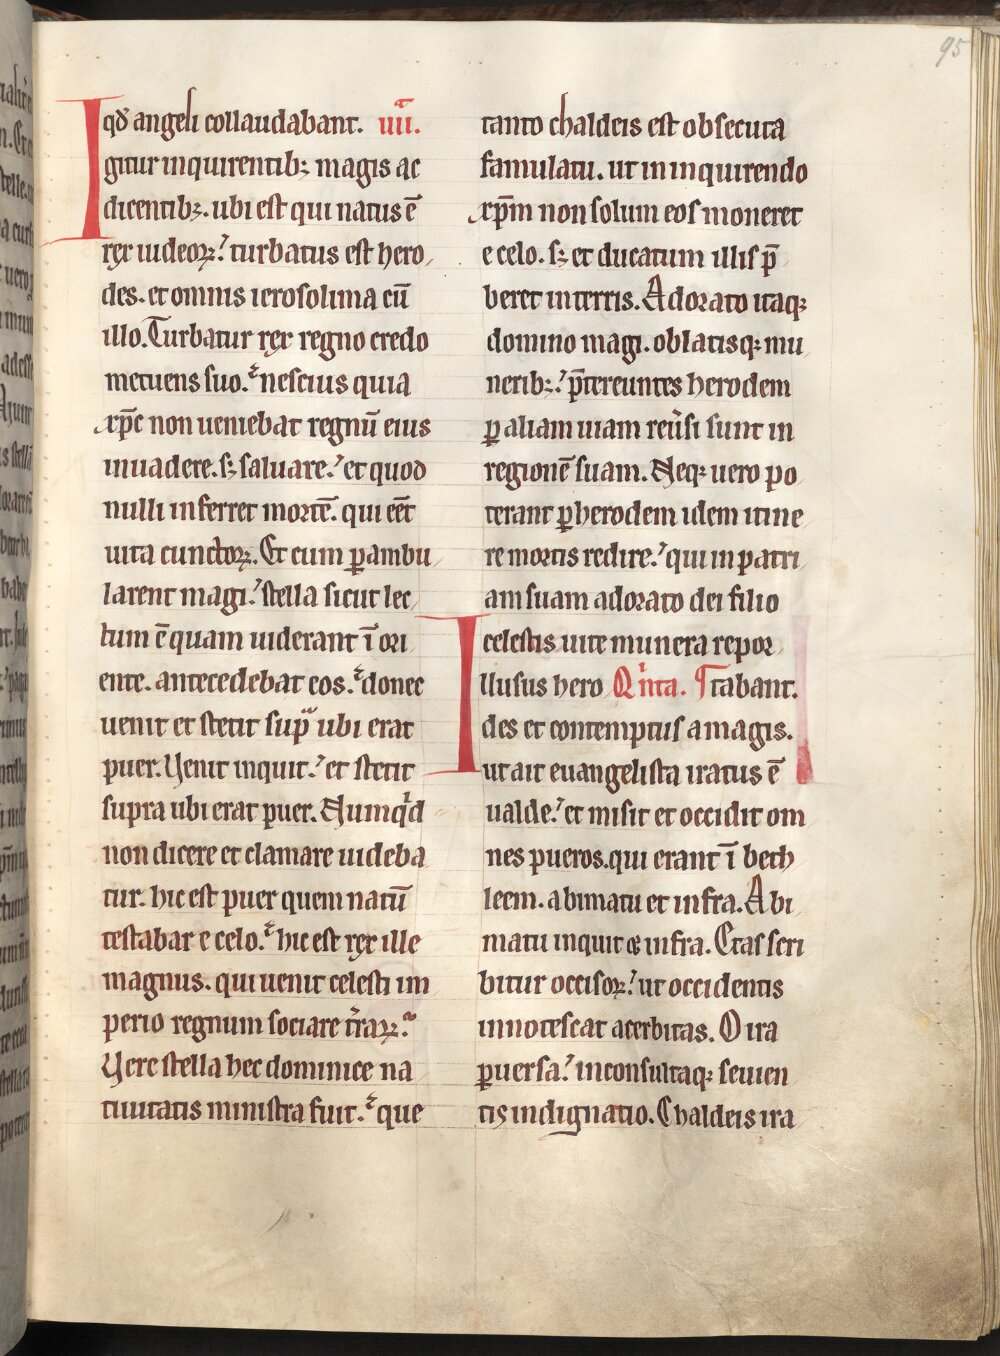 95
qđ angeli collaudabant. iiii.
Igitur inquirentib; magis ac
dicentib;. ubi est qui natus ē
rex iudeoꝝ? turbatus est hero
des. et omnis ierosolima cū
illo. Turbatur rex regno credo
metuens suo. nescius quia
xp̄c non ueniebat regnū eius
inuadere. s; saluare. et quod
nulli inferret mortē. qui eēt
uita cunctoꝝ. Et cum ꝑambu
larent magi. stella sicut lec
tum ē quam uiderant ī ori
ente. antecedebat eos. donec
uenit et stetit supͣ ubi erat
puer. Uenit inquit. et stetit
supra ubi erat puer. Numqͥd
non dicere et clamare uideba
tur. hic est puer quem natū
testabar e celo. hic est rex ille
magnus. qui uenit celesti im
perio regnum sociare t̄raꝝ.
Uere stella hec dominice na
tiuitatis ministra fuit. que
tanto chaldeis est obsecuta
famulatu. ut in inquirendo
xp̄m non solum eos moneret
e celo. s; et ducatum illis p̄
beret in terris. Adorato itaqꝫ
domino magi. oblatisqꝫ mu
nerib;. p̄tereuntes herodem
ꝑ aliam uiam reu̾si sunt in
regionē suam. Neqꝫ uero po
terant ꝑ herodem idem itine
re mortis redire. qui in patri
am suam adorato dei filio
celestis uite munera repor
Illusus hero Qͥnta. ¶ tabant.
des et contemptus a magis.
ut ait euangelista iratus ē
ualde. et misit et occidit om
nes pueros. qui erant ī beth
leem. a bimatu et infra. A bi
matu inquit et infra. Etas scri
bitur occisoꝝ. ut occidentis
innotescat acerbitas. O ira
ꝑuersa. inconsultaqꝫ seuien
tis indignatio. Chaldeis ira